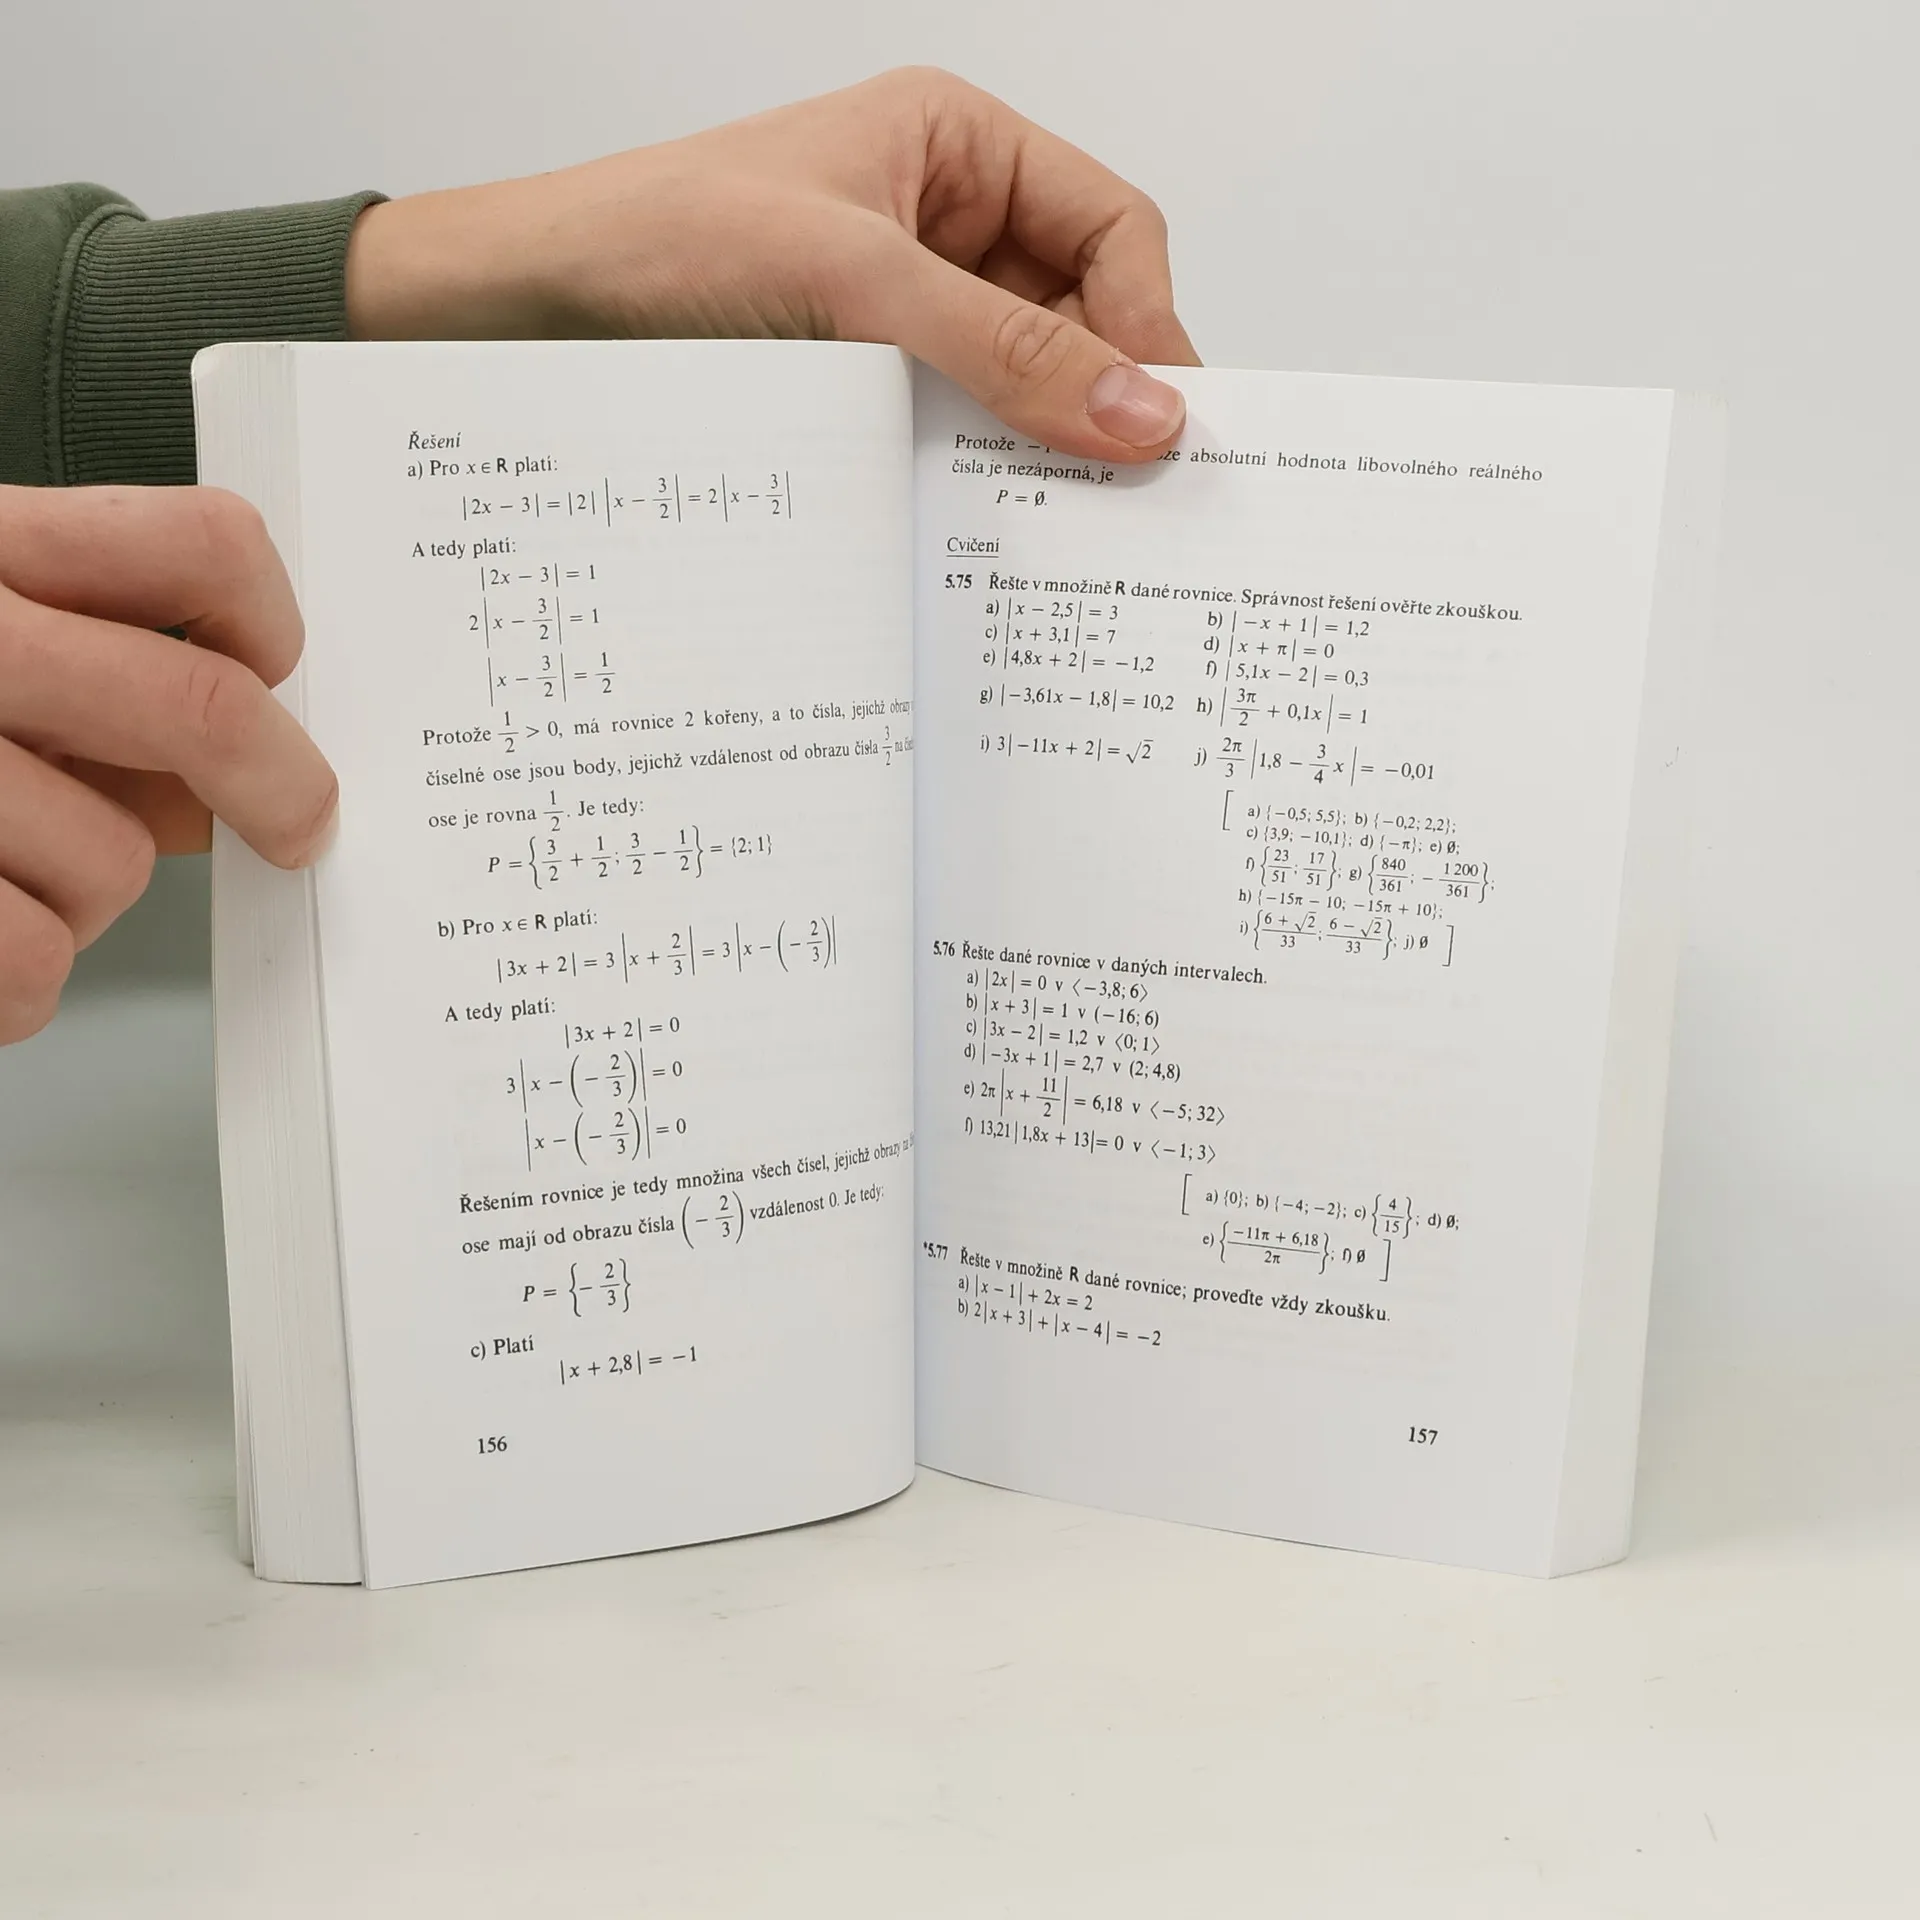 Řešení
a) Pro x ∈ R platí:
|2x − 3| = |2| |x − 3/2| = 2 |x − 3/2|
A tedy platí:
|2x − 3| = 1
2 |x − 3/2| = 1
|x − 3/2| = 1/2
Protože 1/2 > 0, má rovnice 2 kořeny, a to čísla, jejichž obrazy
číselné ose jsou body, jejichž vzdálenost od obrazu čísla 3/2 na
ose je rovna 1/2. Je tedy:
P = {3/2 + 1/2; 3/2 − 1/2} = {2; 1}
b) Pro x ∈ R platí:
|3x + 2| = 3 |x + 2/3| = 3 |x − (− 2/3)|
A tedy platí:
|3x + 2| = 0
3 |x − (− 2/3)| = 0
|x − (− 2/3)| = 0
Řešením rovnice je tedy množina všech čísel, jejichž obrazy na
ose mají od obrazu čísla (− 2/3) vzdálenost 0. Je tedy:
P = {− 2/3}
c) Platí
|x + 2,8| = −1
156
Protože absolutní hodnota libovolného reálného
čísla je nezáporná, je
P = ∅.
Cvičení
5.75 Řešte v množině R dané rovnice. Správnost řešení ověřte zkouškou.
a) |x − 2,5| = 3 b) |−x + 1| = 1,2
c) |x + 3,1| = 7 d) |x + π| = 0
e) |4,8x + 2| = −1,2 f) |5,1x − 2| = 0,3
g) |−3,61x − 1,8| = 10,2 h) |3π/2 + 0,1x| = 1
i) 3|−11x + 2| = √2 j) 2π/3 |1,8 − 3/4 x| = −0,01
[ a) {−0,5; 5,5}; b) {−0,2; 2,2};
c) {3,9; −10,1}; d) {−π}; e) ∅;
f) {23/51; 17/51}; g) {840/361; − 1 200/361};
h) {−15π − 10; −15π + 10};
i) {6 + √2/33; 6 − √2/33}; j) ∅ ]
5.76 Řešte dané rovnice v daných intervalech.
a) |2x| = 0 v ⟨−3,8; 6⟩
b) |x + 3| = 1 v (−16; 6)
c) |3x − 2| = 1,2 v ⟨0; 1⟩
d) |−3x + 1| = 2,7 v (2; 4,8)
e) 2π |x + 11/2| = 6,18 v ⟨−5; 32⟩
f) 13,21 |1,8x + 13| = 0 v ⟨−1; 3⟩
[ a) {0}; b) {−4; −2}; c) {4/15}; d) ∅;
e) {−11π + 6,18/2π}; f) ∅ ]
*5.77 Řešte v množině R dané rovnice; proveďte vždy zkoušku.
a) |x − 1| + 2x = 2
b) 2|x + 3| + |x − 4| = −2
157